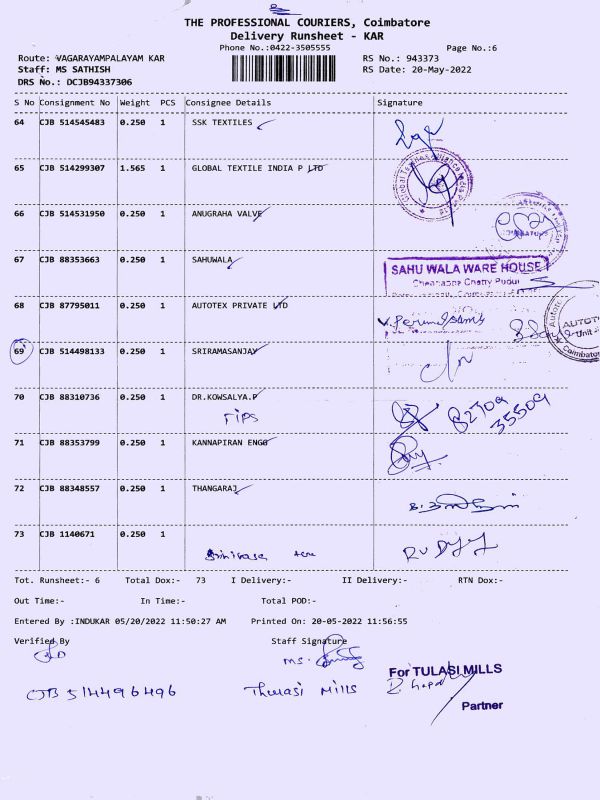 THE PROFESSIONAL COURIERS, Coimbatore
Delivery Runsheet - KAR
Phone No.:0422-3505555 Page No.:6
Route: VAGARAYAMPALAYAM KAR RS No.: 943373
Staff: MS SATHISH RS Date: 20-May-2022
DRS No.: DCJB94337306
S No Consignment No Weight PCS Consignee Details Signature
64 CJB 514545483 0.250 1 SSK TEXTILES
65 CJB 514299307 1.565 1 GLOBAL TEXTILE INDIA P LTD
66 CJB 514531950 0.250 1 ANUGRAHA VALVE
67 CJB 88353663 0.250 1 SAHUWALA
SAHU WALA WARE HOUSE
68 CJB 87795011 0.250 1 AUTOTEX PRIVATE LTD
69 CJB 514498133 0.250 1 SRIRAMASANJAY
70 CJB 88310736 0.250 1 DR.KOWSALYA.P
TIPS 82709
35509
71 CJB 88353799 0.250 1 KANNAPIRAN ENGG
72 CJB 88348557 0.250 1 THANGARAJ
73 CJB 1140671 0.250 1
Tot. Runsheet:- 6 Total Dox:- 73 I Delivery:- II Delivery:- RTN Dox:-
Out Time:- In Time:- Total POD:-
Entered By :INDUKAR 05/20/2022 11:50:27 AM Printed On: 20-05-2022 11:56:55
Verified By Staff Signature
MS.
For TULASI MILLS
CJB 514496496 Thulasi Mills
Partner